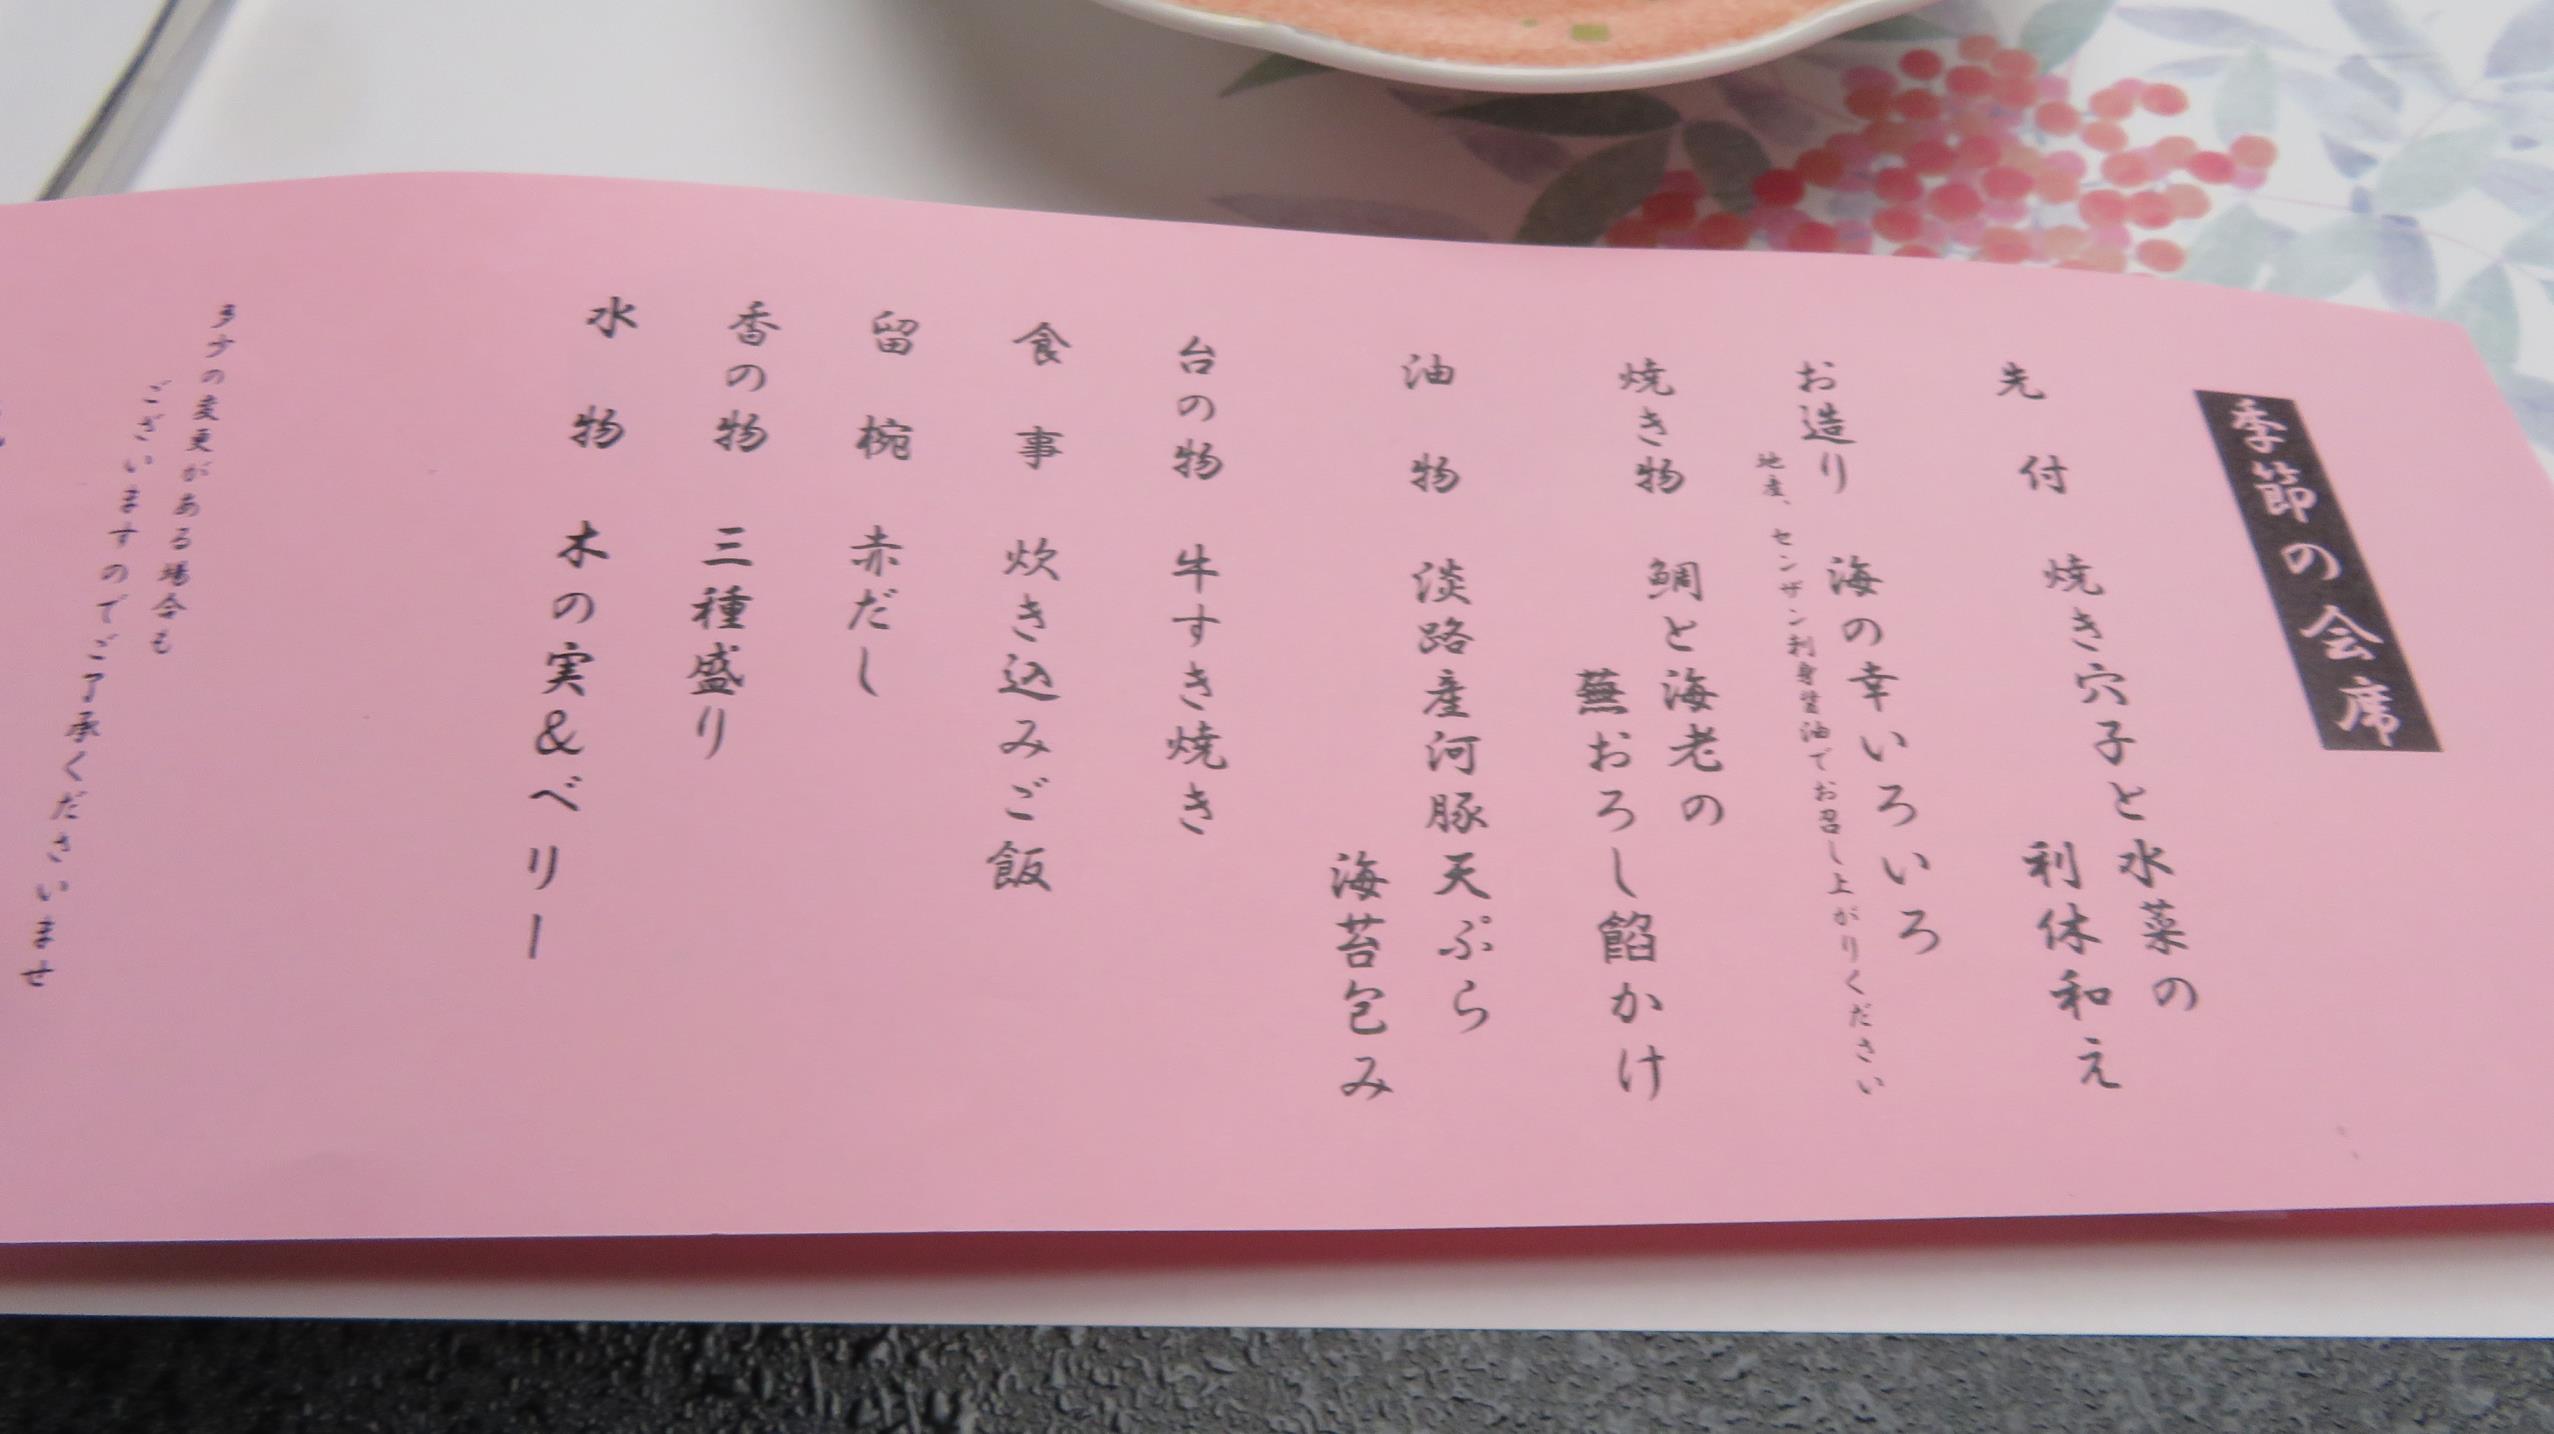 季節の会席
先付 焼き穴子と水菜の
利休和え
お造り 海の幸いろいろ
地産、センザン刺身醤油でお召し上がりください
焼き物 鯛と海老の
蕪おろし餡かけ
油物 淡路産河豚天ぷら
海苔包み
台の物 牛すき焼き
食事 炊き込みご飯
留椀 赤だし
香の物 三種盛り
水物 木の実&ベリー
多少の変更がある場合も
ございますのでご了承くださいませ